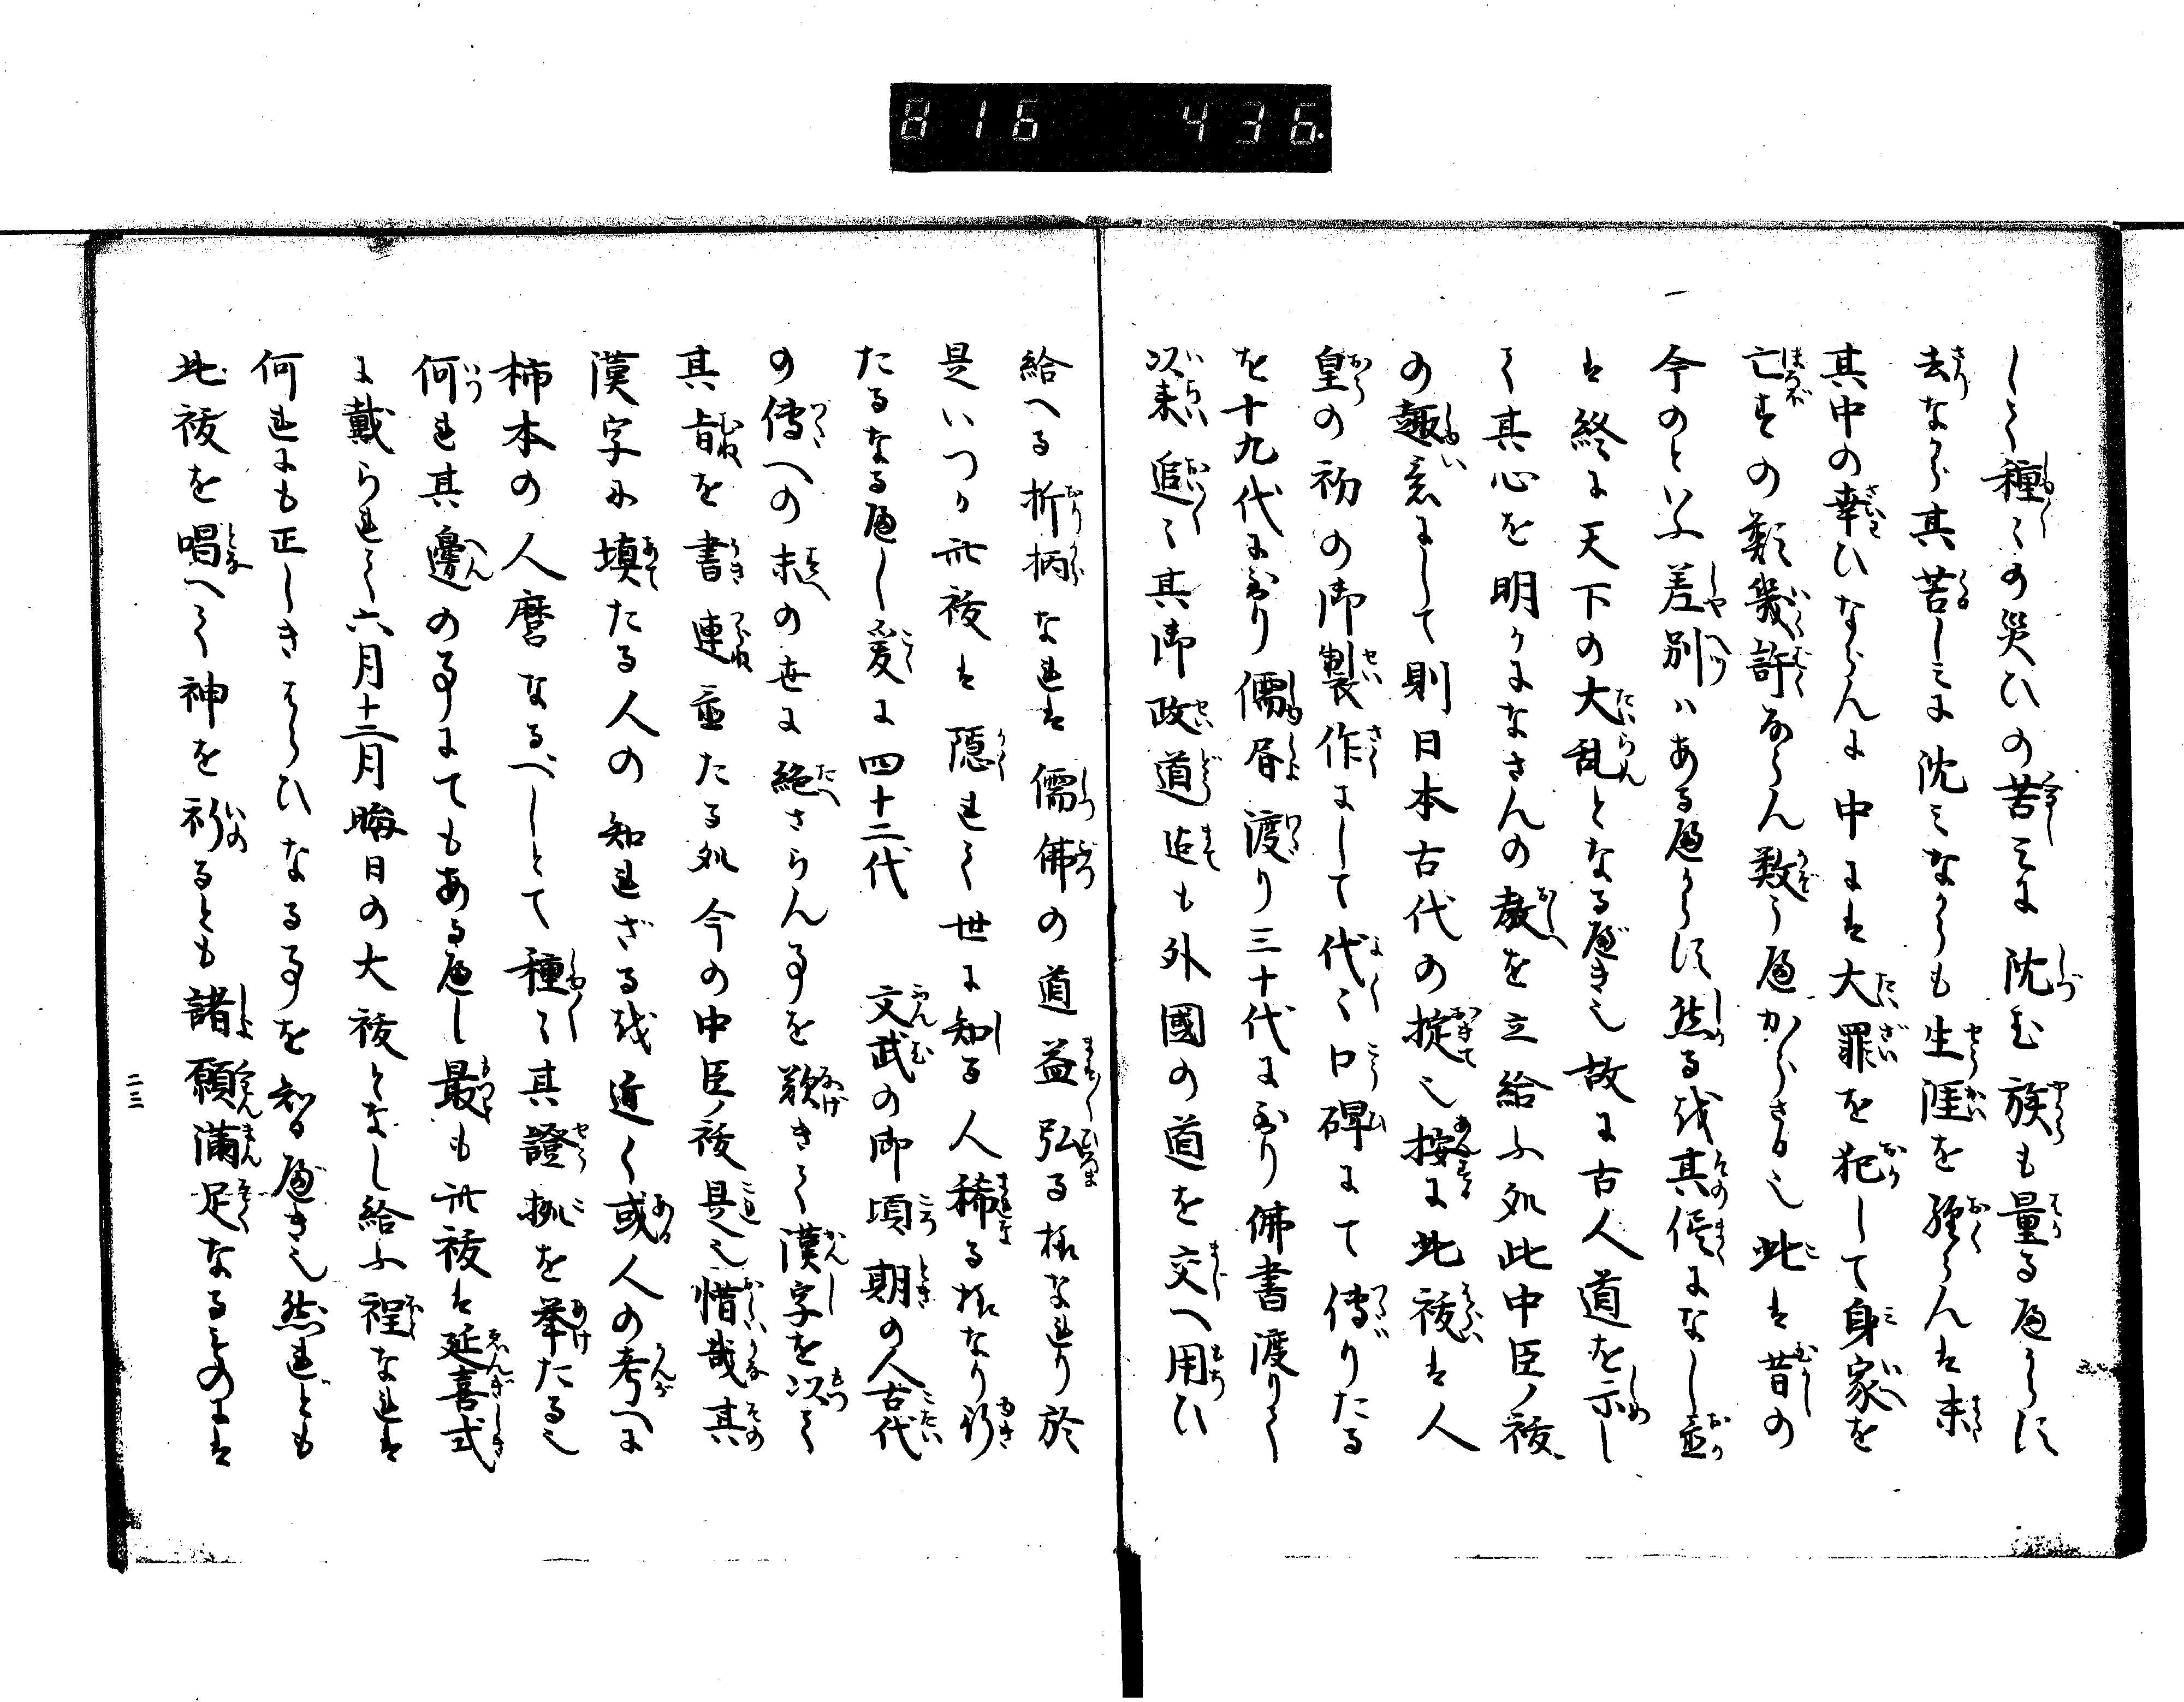 816 436.
して種々の災ひの苦みに沈む族も量るべからず
去ながら其苦しみに沈みながらも生涯を経らんは未
其中の幸ひならんに中には大罪を犯して身家を
亡すの類幾許ならん数う可からざる也此は昔の
今のといふ差別ハある可からず然る を其侭になし置
は終に天下の大乱となる可き也故に古人道を示し
て其心を明かになさんの教を立給ふ処此中臣ノ祓
の趣意にして則日本古代の掟也按に此祓は人
皇の初の御製作にして代々口碑にて傳りたる
を十九代に至り儒書渡り三十代に至り佛書渡りて
以来追々其御政道迄も外國の道を交へ用ひ
給へる折柄なれは儒佛の道益弘る様なれり於
是いつか此祓は隠れて世に知る人稀る様なり行
たるなる可し爰に四十二代 文武の御頃期の人古代
の傳への末の世に絶さらん事を歎きて漢字を以て
其旨を書連置たる処今の中臣ノ祓是也惜哉其
漢字に填たる人の知れざる を近く或人の考へに
柿本の人麿なるべしとて種々其證拠を挙たる也
何れ其邊の事にてもある可し最も此祓は延喜式
に載られて六月十二月晦日の大祓となし給ふ程なれは
何れにも正しきはらひなる事を知る可き也然れども
此祓を唱へて神を祈るとも諸願満足なるものには
二三